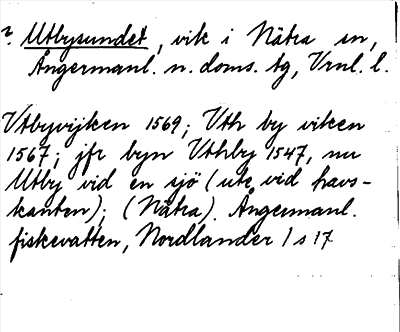 ? Utbysundet, vik i Nätra sn,
Ångermanl. n. doms. tg, Vrnl. l.
Vtbyvijken 1569; Vth by viken
1567; jfr byn Vthby 1547, nu
Utby vid en sjö (ute vid havs-
kanten); (Nätra). Ångermanl.
fiskevatten, Nordlander 1 s 17